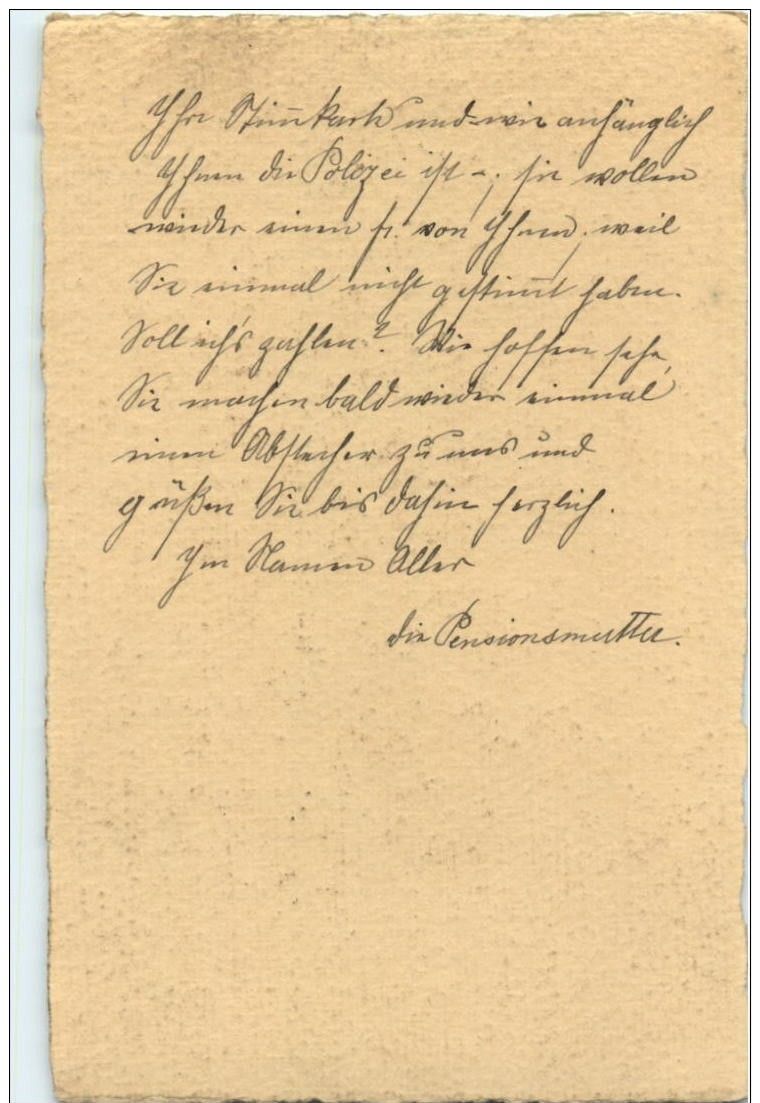 Ihre Stim̅karte und wie anhänglich
Ihnen die Polizei ist –; sie wollen
wieder einen fr. von Ihnen, weil
Sie einmal nicht gestim̅t haben.
Soll ich's zahlen? Wir hoffen sehr,
Sie machen bald wieder einmal
einen Abstecher zu uns und
güßen Sie bis dahin herzlich.
Im Namen Aller
die Pensionsmutter.